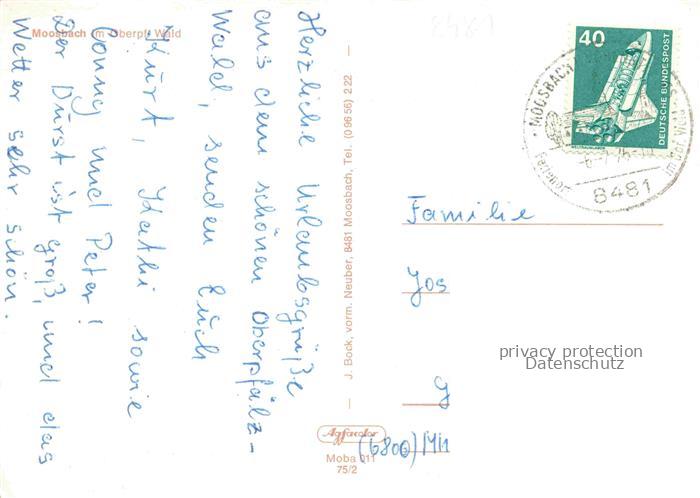 Moosbach im Oberpf. Wald
Herzliche Urlaubsgrüße
aus dem schönen Oberpfälz-
Wald, senden Euch
Kurt, Kathi sowie
Conny und Peter!
Der Durst ist groß, und das
Wetter sehr schön.
J. Bock, vorm. Neuber, 8481 Moosbach, Tel. (0 96 56) 2 22
Agfacolor
Moba 011
75/2
8481
40
DEUTSCHE BUNDESPOST
MOOSBACH
8481
Familie
Jos
privacy protection
Datenschutz
(6800)